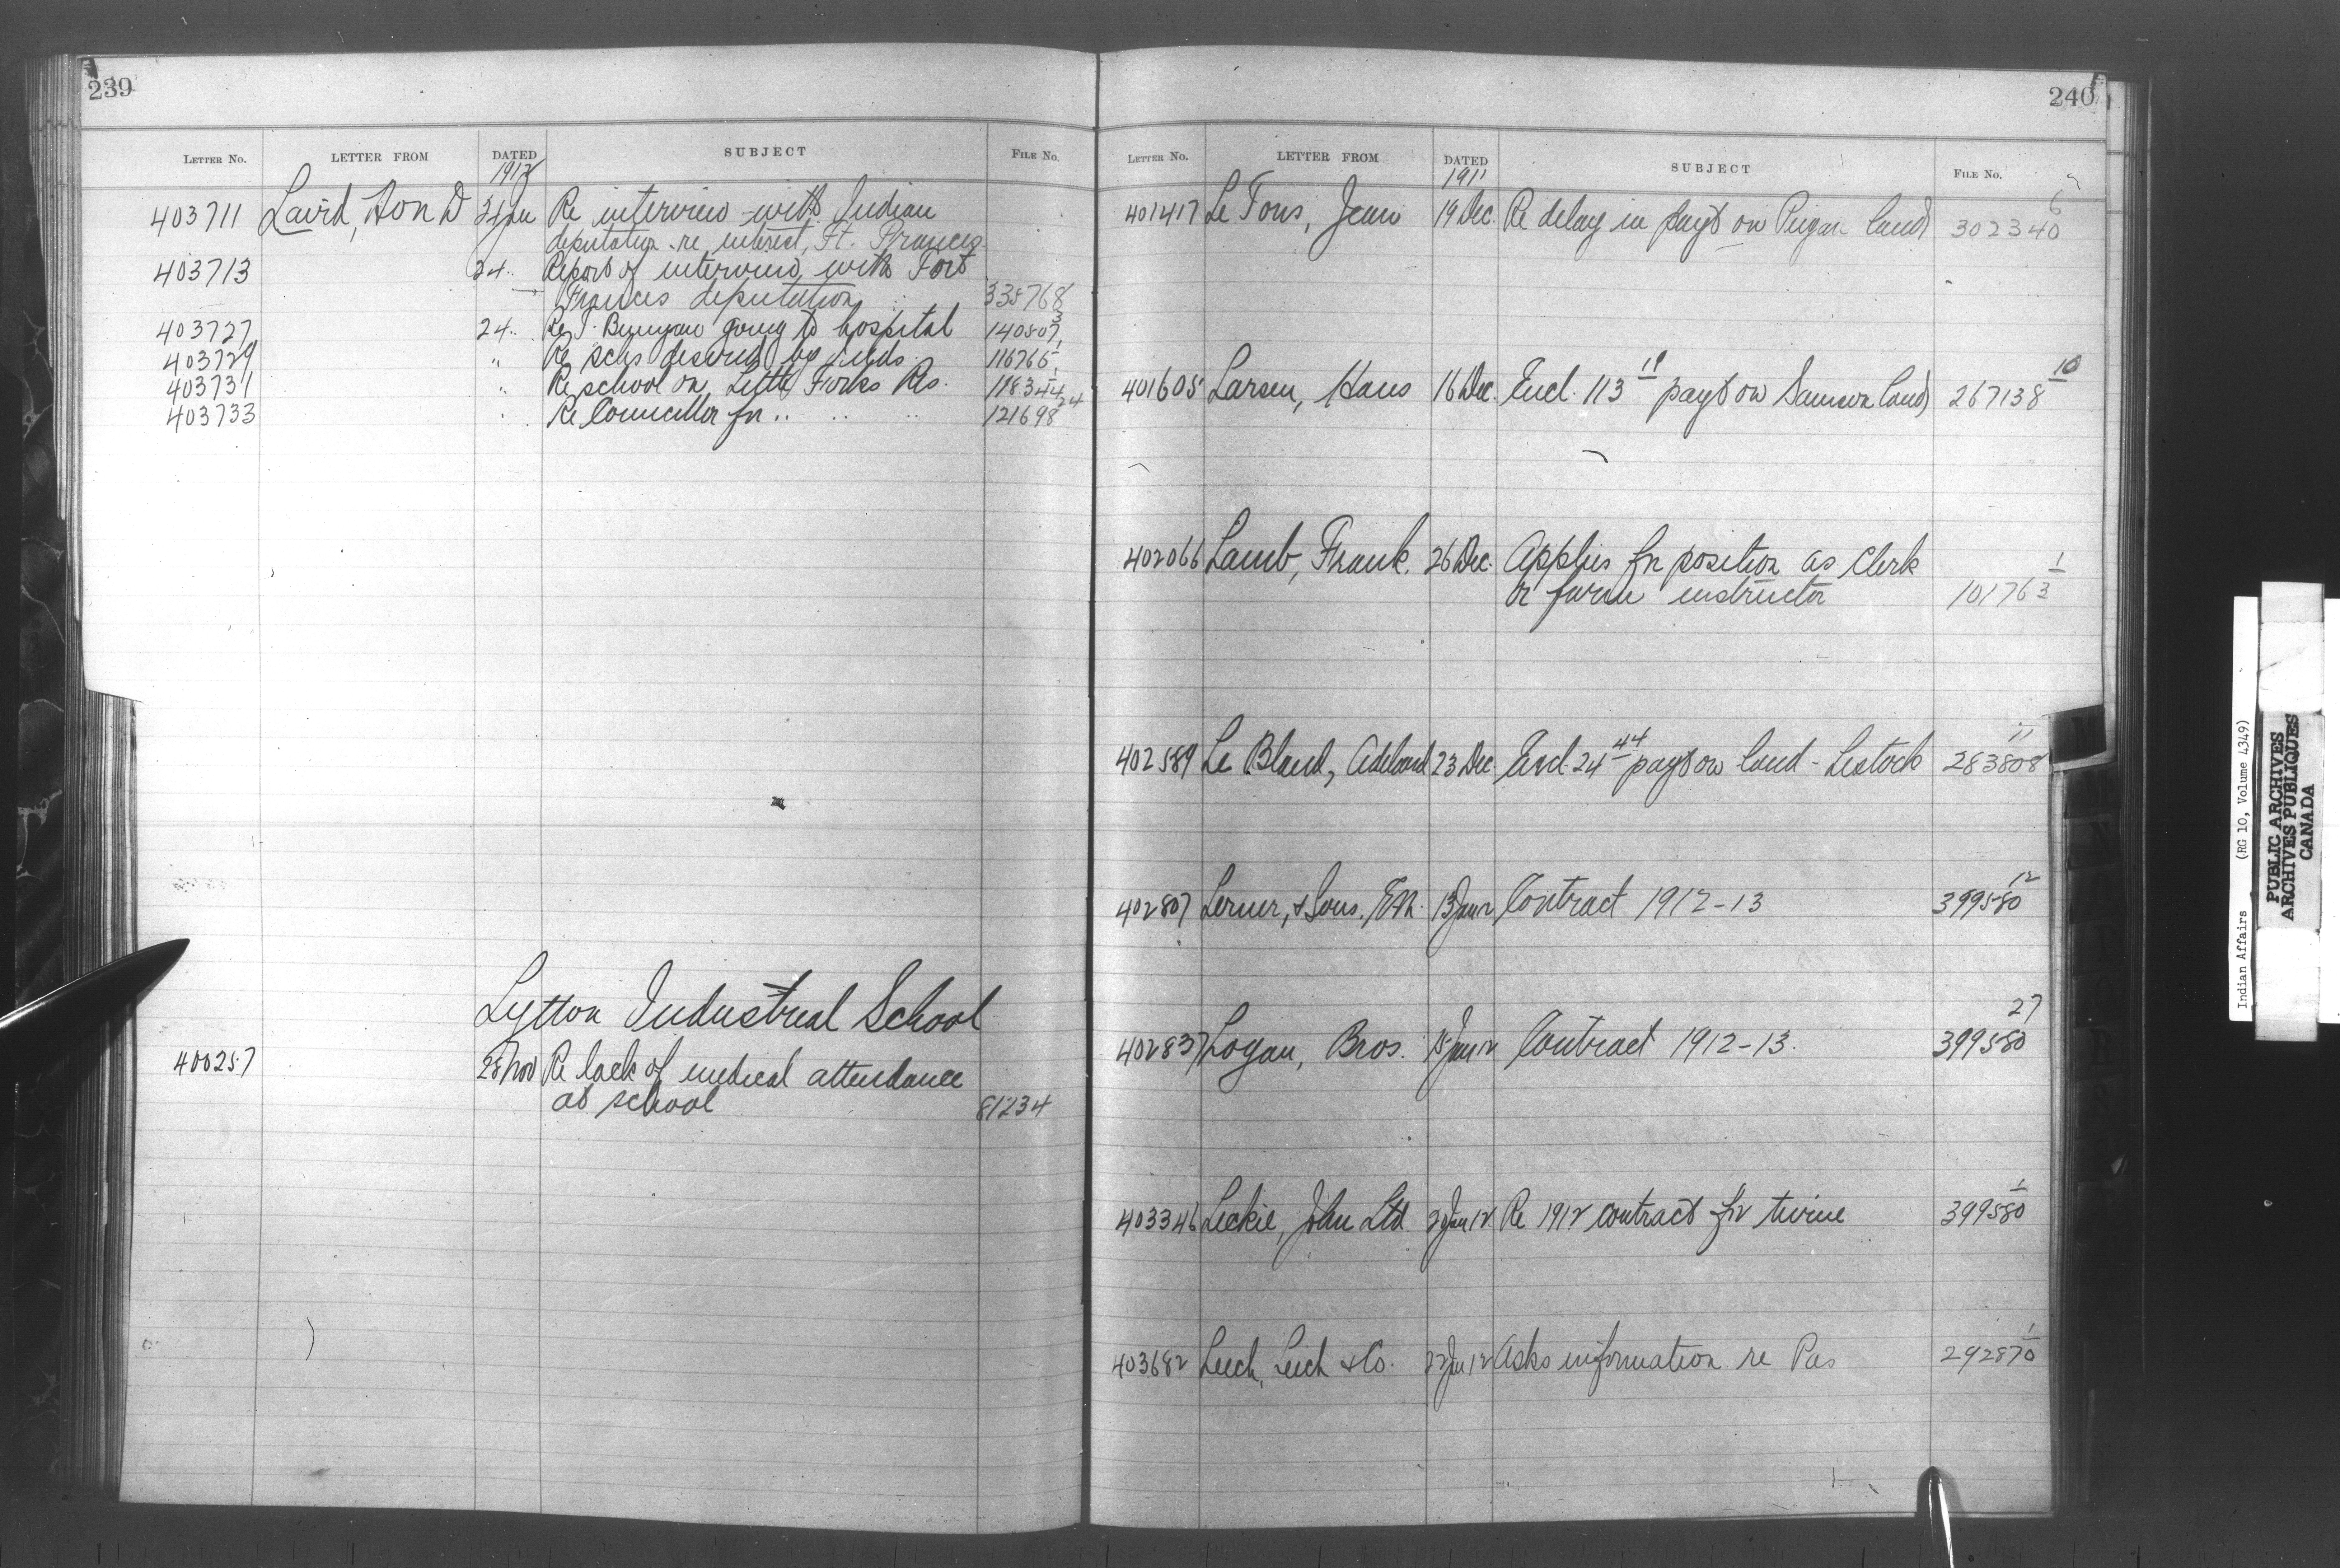 239
LETTER NO. LETTER FROM DATED SUBJECT FILE NO.
1912
403711 Laird, Hon D 24 Jan Re interview with Indian
deputation re interest, Ft. Frances
403713 24 " Report of interview with Fort
Frances deputation 338768
403727 24 " Re J. Bunyan going to hospital 140807 3
403729 " Re schs desired by Inds. 116765 1
403731 " Re school on Little Forks Res. 118344 1
403733 " Re Councillor for " " " 121698 24
Lytton Industrial School
400257 28 Nov Re lack of medical attendance
at school 81234
240
LETTER NO. LETTER FROM DATED SUBJECT FILE NO.
1911
401417 Le Fons, Jean 19 Dec. Re delay in payt on Peigan land 302340 6
401605 Larsen, Hans 16 Dec. Encl. 113 11 payt on Samson land 267138 10
402066 Lamb, Frank. 26 Dec. Applies for position as clerk
or farm instructor 101763 1
402589 Le Bland, 23 Dec Encl 24 44 payt on land - Lestock 283808 11
402807 Lerner, & Sons, 13 Jan 12 Contract 1912-13 399580 12
402837 Logan, Bros. 15 Jan 12 Contract 1912-13. 399580 27
403346 Leckie, John Ltd 20 Jan 12 Re 1912 contract for twine 399580 1
403682 Leech, Leich & Co. 22 Jan 12 Asks information re Pas 292870 1
Indian Affairs (RG 10, Volume 4349)
PUBLIC ARCHIVES
ARCHIVES PUBLIQUES
CANADA